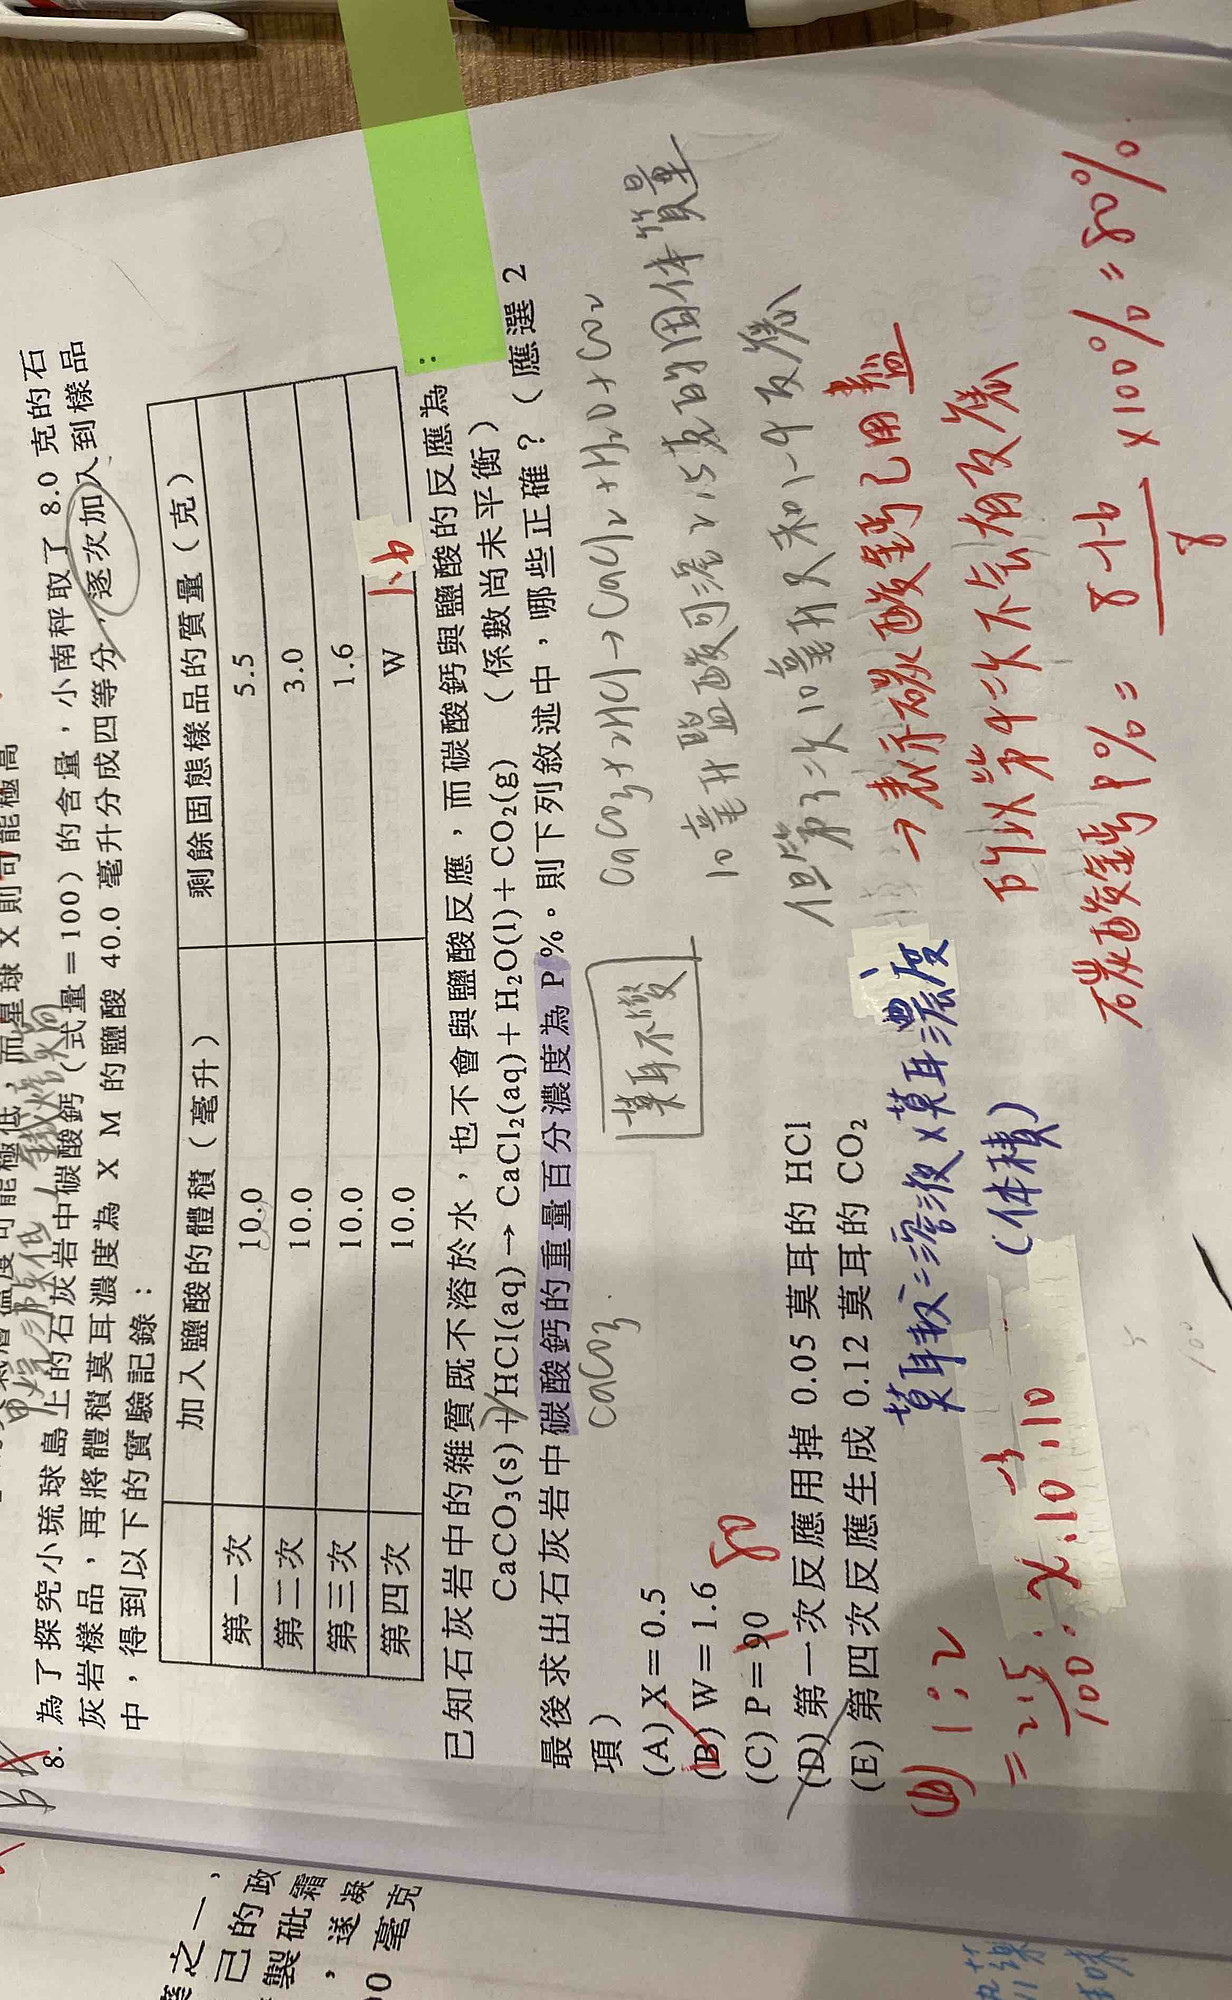 8. 為了探究小琉球島上的石灰岩中碳酸鈣(式量=100)的含量,小南秤取了 8.0 克的石
灰岩樣品,再將體積莫耳濃度為 X M 的鹽酸 40.0 毫升分成四等分,逐次加入到樣品
中,得到以下的實驗記錄:
加入鹽酸的體積(毫升) 剩餘固態樣品的質量(克)
第一次 10.0 5.5
第二次 10.0 3.0
第三次 10.0 1.6
第四次 10.0 W 1.6
已知石灰岩中的雜質既不溶於水,也不會與鹽酸反應,而碳酸鈣與鹽酸的反應為:
CaCO₃(s)+HCl(aq)→CaCl₂(aq)+H₂O(l)+CO₂(g) (係數尚未平衡)
最後求出石灰岩中碳酸鈣的重量百分濃度為 P%。則下列敘述中,哪些正確?(應選 2
項)
CaCO3
莫耳不變
CaCO3+2HCl→CaCl2+H2O+CO2
(A) X=0.5
(B) W=1.6
(C) P=90
80
(D) 第一次反應用掉 0.05 莫耳的 HCl
(E) 第四次反應生成 0.12 莫耳的 CO₂
10毫升鹽酸可溶2.5克的固体質量
但第三次10毫升只和1.4反應
→表示碳酸鈣已用盡
所以第四次不会有反應
碳酸鈣P%= 8-1.6/8 ×100%=80%
莫耳數=溶液×莫耳濃度
(体積)
1:2
=2.5/100:x.10⁻³.10